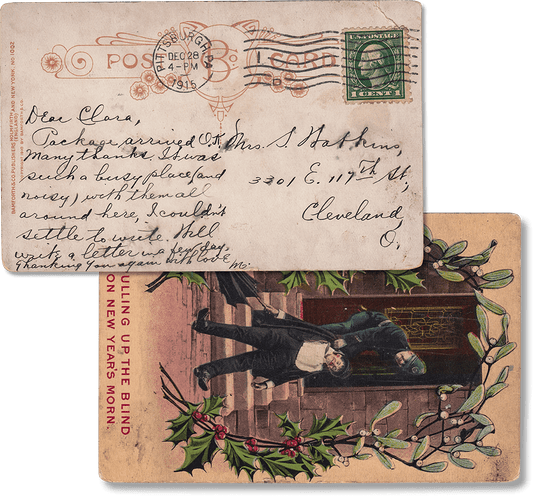 POST CARD
PITTSBURGH, PA
DEC 28
4-PM
1915
U.S. POSTAGE
1 CENT 1
BAMFORTH & CO. PUBLISHERS, HOLMFIRTH AND NEW YORK. NO. 1002
Dear Clara,
Package arrived O.K.
Many thanks. It was
such a busy place (and
noisy) with them all
around here, I couldn't
settle to write. Will
write a letter in a few days,
Thanking You again with love
Mrs. S. Watkins,
3301 E. 117th St,
Cleveland,
O.
PULLING UP THE BLIND
ON NEW YEAR'S MORN.